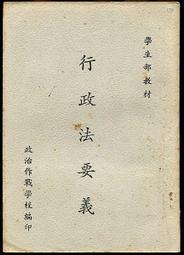 學生部教材
行政法要義
政治作戰學校編印